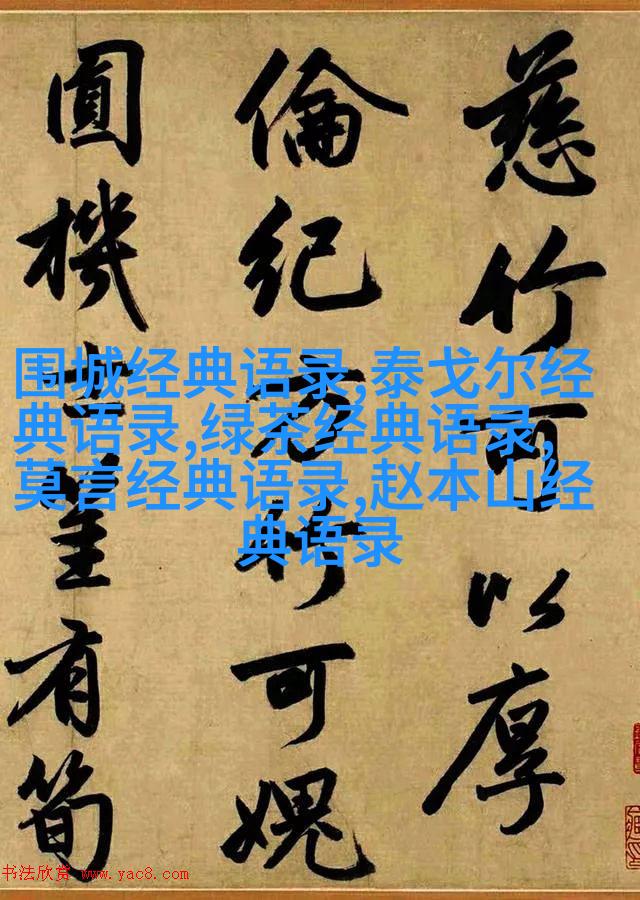 慈竹可以厚
倫紀方竹可愧
圓機士有筍
围城经典语录,泰戈尔经
典语录,绿茶经典语录,
莫言经典语录,赵本山经
典语录
书法欣赏 www.yac8.com